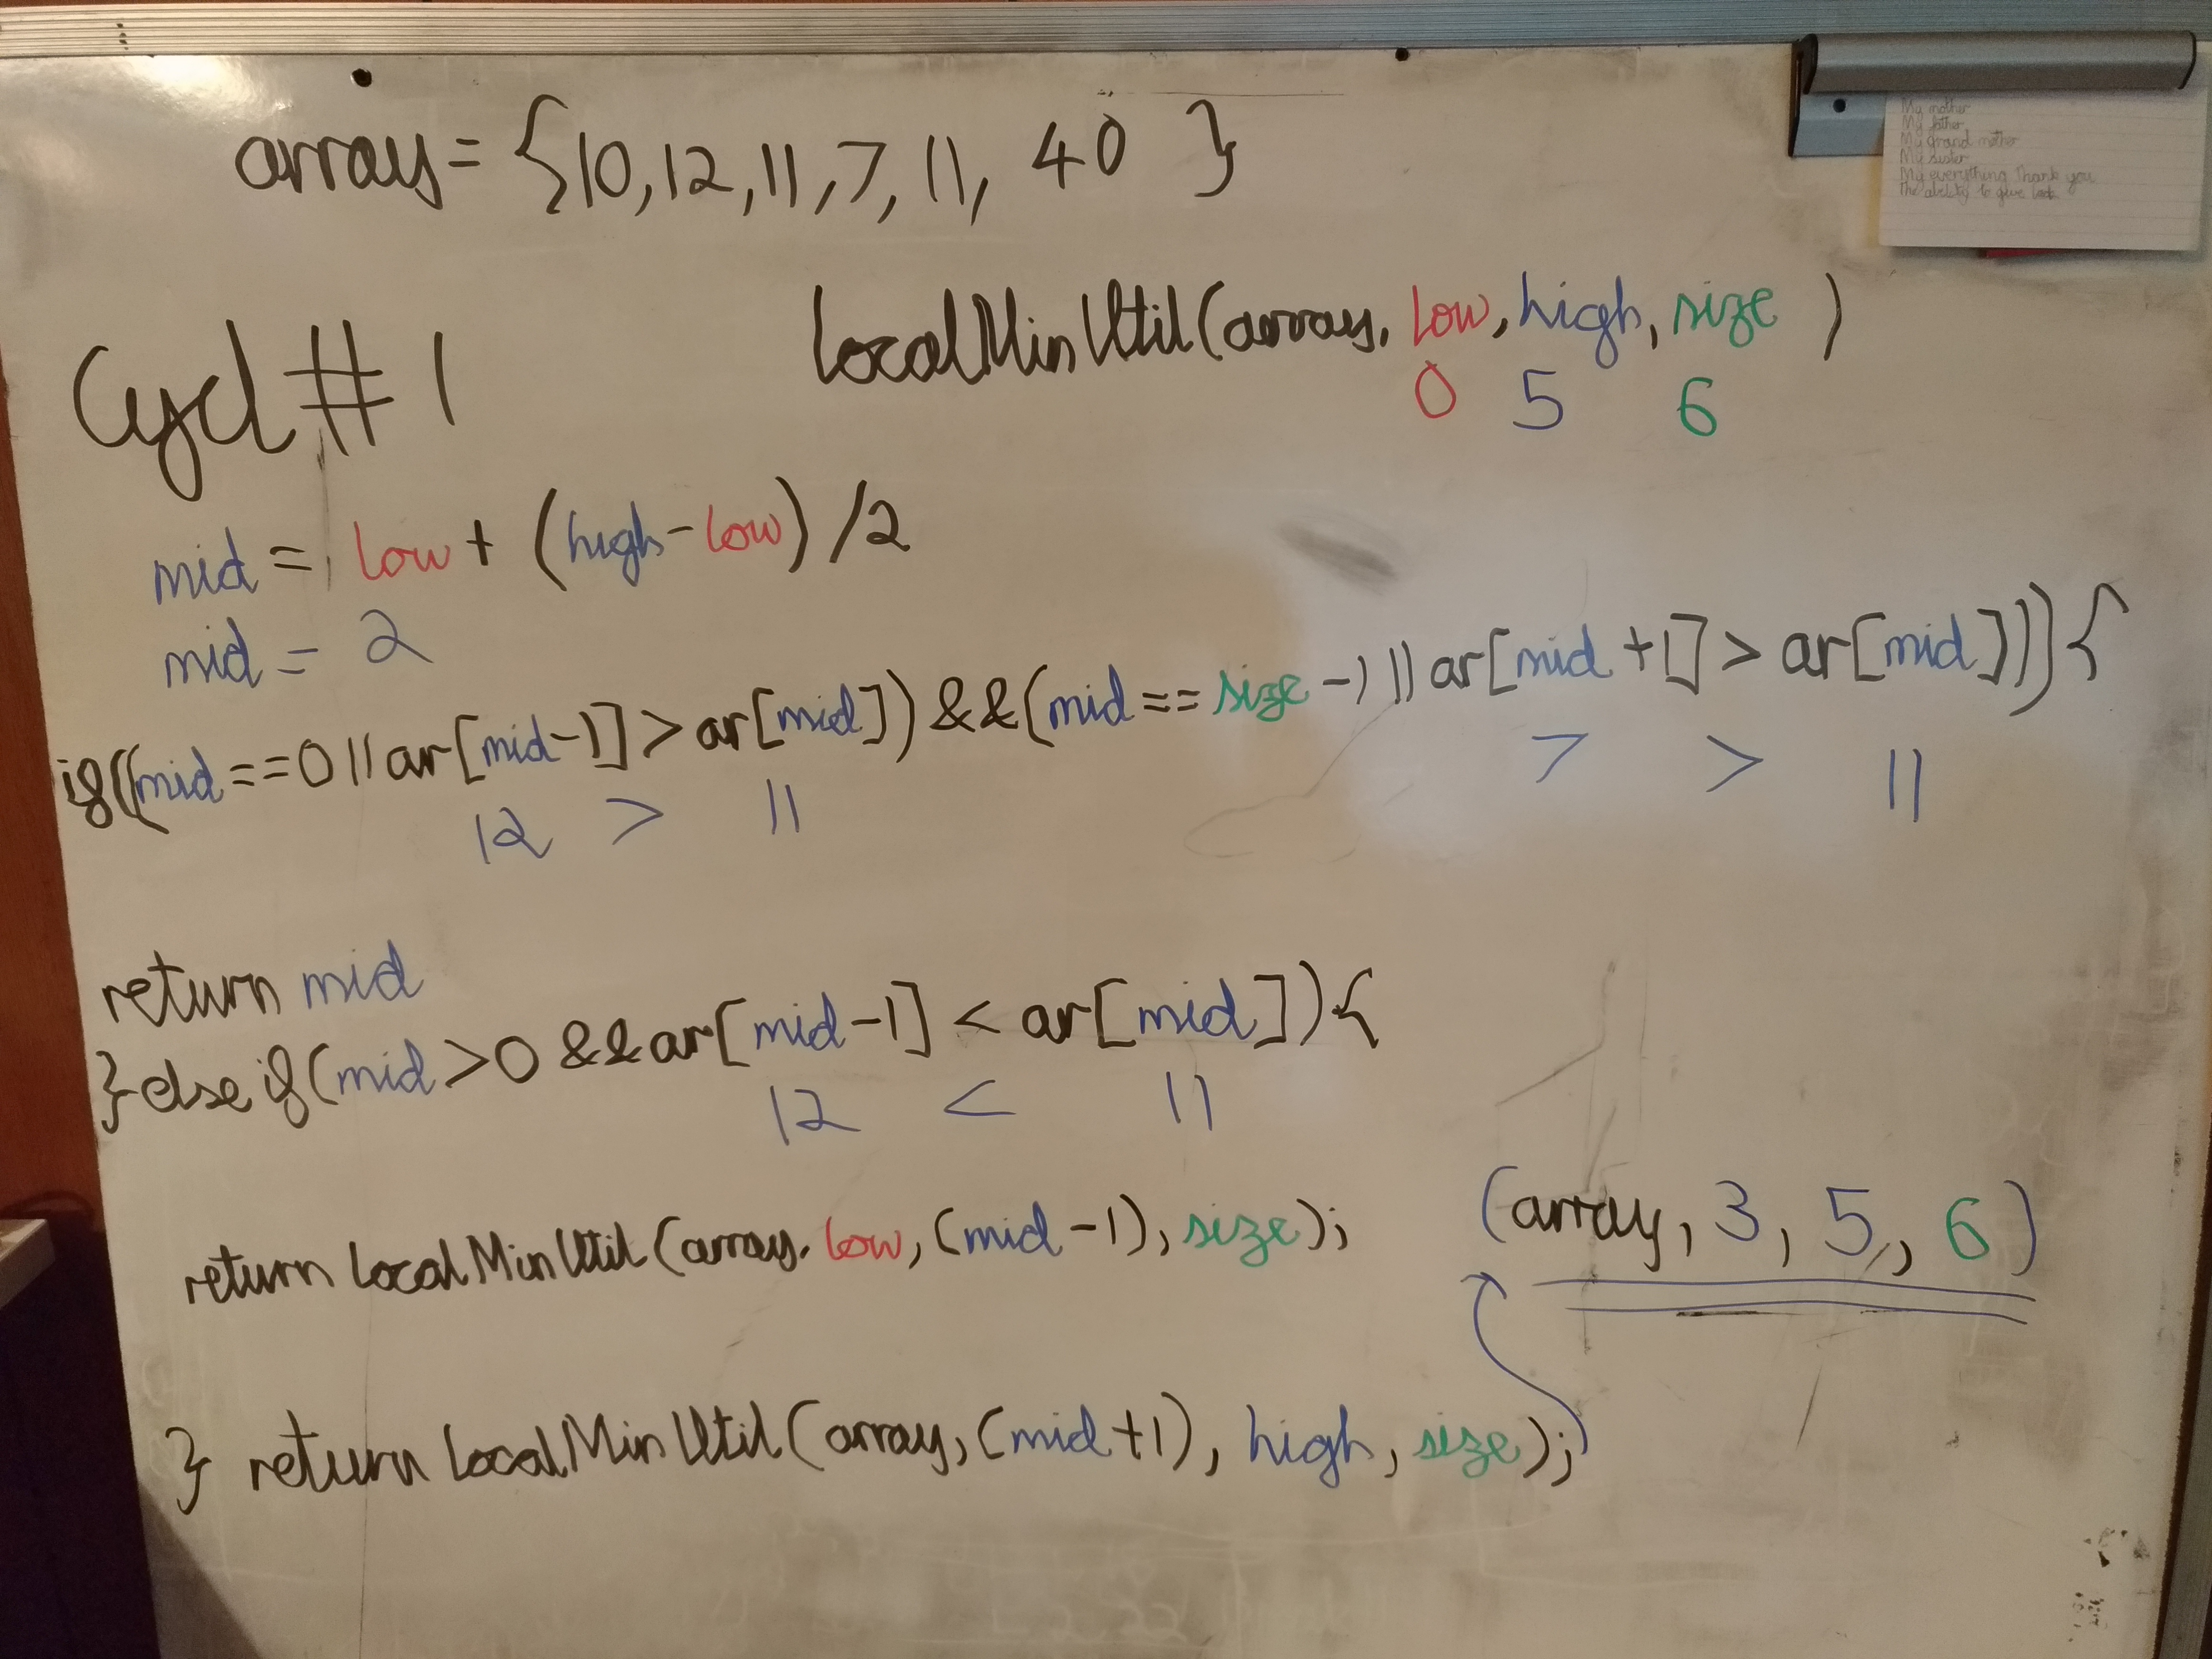 array = {10, 12, 11, 7, 11, 40 }
My mother
My father
My grand mother
My sister
My everything Thank you
The ability to give
LocalMinUtil(array, low, high, size )
0 5 6
Cycl # 1
mid = low + (high-low) /2
mid = 2
if((mid==0 || ar[mid-1] > ar[mid]) && (mid == size -1 || ar[mid +1] > ar[mid])){
12 > 11 7 > 11
return mid
} else if(mid>0 && ar[mid-1] < ar[mid]){
12 < 11
return LocalMinUtil(array, low, (mid-1), size);
(array, 3, 5, 6)
} return LocalMinUtil(array, (mid+1), high, size);